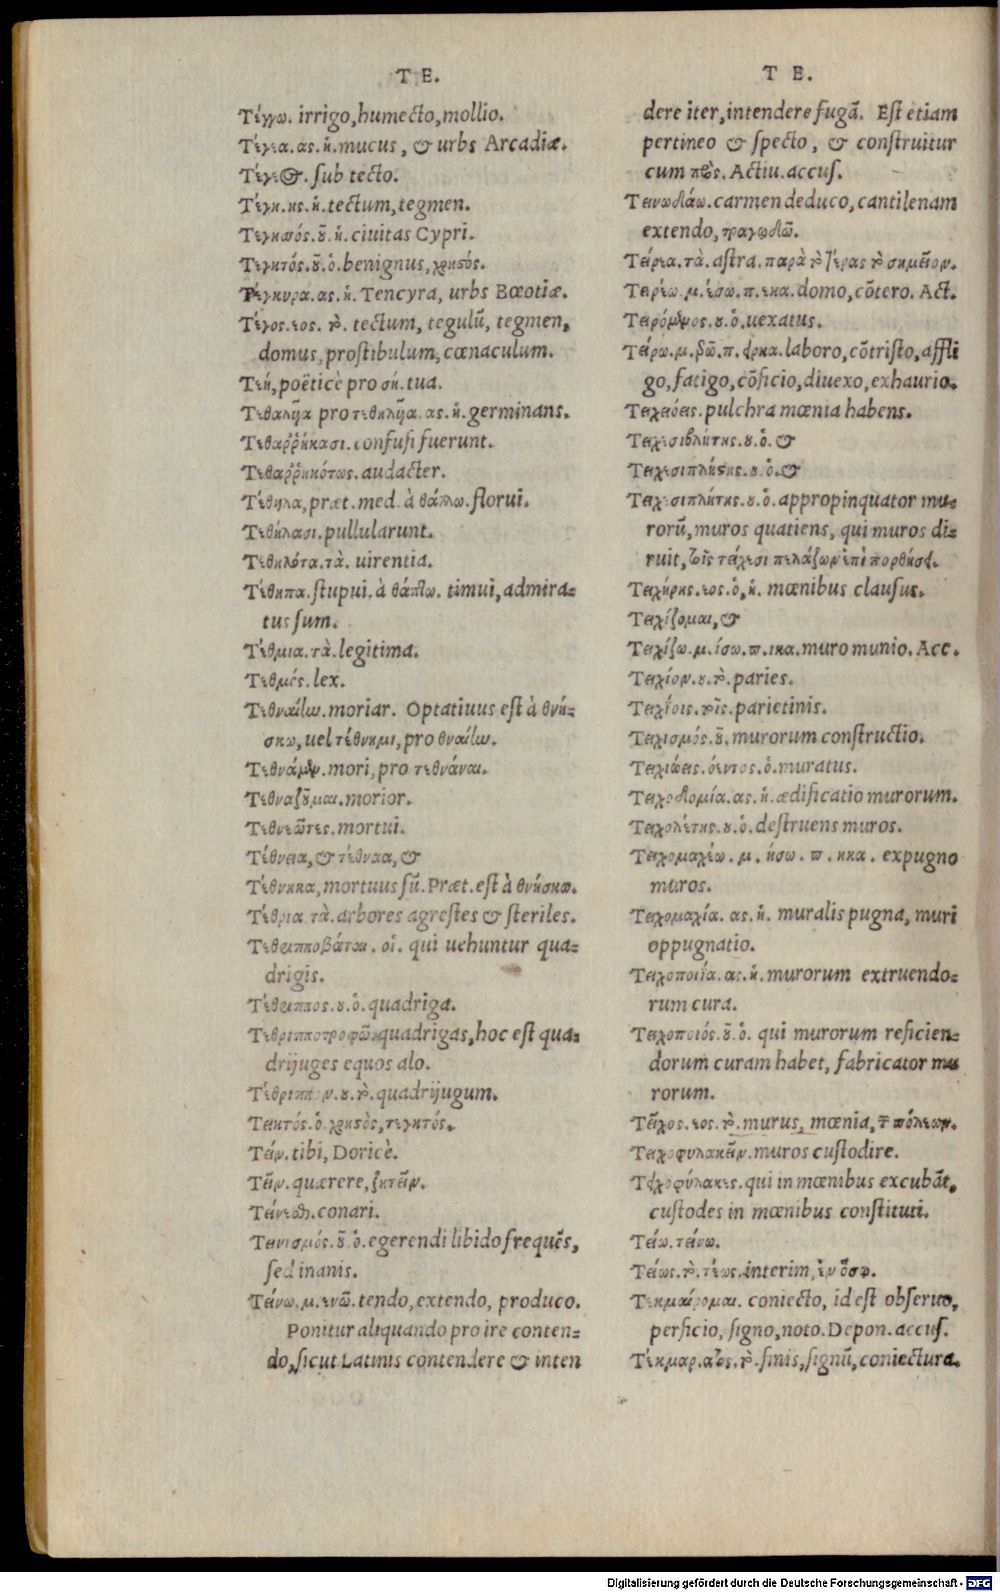 T E.
Τέγγω. irrigo, humecto, mollio.
Τέγεα. ας. ἡ. mucus, & urbs Arcadiæ.
Τέγεος. sub tecto.
Τέγη. ης. ἡ. tectum, tegmen.
ἡ. ciuitas Cypri.
ὁ. benignus, χρηστός.
Τέγκυρα. ας. ἡ. Tencyra, urbs Bœotiæ.
Τέγος. εος. τὸ. tectum, tegulũ, tegmen,
domus, prostibulum, cœnaculum.
Τεή, poëticè pro σή. tua.
Τεθαλυῖα pro τεθηλυῖα. ας. ἡ. germinans.
Τεθαῤῥήκασι. confusi fuerunt.
Τεθαῤῥηκότως. audacter.
Τέθηλα, præt. med. à θάλλω. florui.
Τεθήλασι. pullularunt.
Τεθηλότα. τὰ. uirentia.
Τέθηπα. stupui. à θάπτω. timui, admira-
tus sum.
Τέθμια. τὰ. legitima.
Τεθμός. lex.
Τεθναίην. moriar. Optatiuus est à θνή-
σκω, uel τέθνημι, pro θναίην.
Τεθνάμεν. mori, pro τεθνάναι.
Τεθναξοῦμαι. morior.
Τεθνεῶτες. mortui.
Τέθνεια, & τέθναα, &
Τέθνηκα, mortuus sũ. Præt. est à θνήσκω.
Τέθρια. τὰ. arbores agrestes & steriles.
Τεθριπποβάται. οἱ. qui uehuntur qua-
drigis.
Τέθριππος. ου. ὁ. quadriga.
Τεθριπποτροφῶ. quadrigas, hoc est qua-
drijuges equos alo.
Τέθριππον. ου. τὸ. quadrijugum.
Τεικτός. ὁ. χρηστὸς, τεγκτός.
Τείν. tibi, Doricè.
Τεῖν. quærere, ζητεῖν.
conari.
Τεινεσμός. οῦ. ὁ. egerendi libido frequẽs,
sed inanis.
Τείνω. μ. ενῶ. tendo, extendo, produco.
Ponitur aliquando pro ire conten-
do, sicut Latinis contendere & inten
T E.
dere iter, intendere fugã. Est etiam
pertineo & specto, & construitur
cum πρὸς. Actiu. accus.
Τεινωδιάω. carmen deduco, cantilenam
extendo, τραγῳδιῶ.
Τείρεα. τὰ. astra. παρὰ τὸ τέρας τὸ σημεῖον.
Τειρέω. μ. έσω. π. εκα. domo, cõtero. Act.
Τειρόμενος. ου. ὁ. uexatus.
Τείρω. μ. ρῶ. π. ερκα. laboro, cõtristo, affli
go, fatigo, cõficio, diuexo, exhaurio.
Τειχιόεις. pulchra mœnia habens.
Τειχεσιβλήτης. ου. ὁ. &
Τειχεσιπλήστης. ου. ὁ. &
Τειχεσιπλήτης. ου. ὁ. appropinquator mu-
rorũ, muros quatiens, qui muros di-
ruit, τοῖς τείχεσι πελάζων ἐπὶ πορθήσει.
Τειχήρης. εος. ὁ, ἡ. mœnibus clausus.
Τειχίζομαι, &
Τειχίζω. μ. ίσω. π. ικα. muro munio. Acc.
Τειχίον. ου. τὸ. paries.
Τειχίοις. τοῖς. parietinis.
Τειχισμός. οῦ. murorum constructio.
Τειχιόεις. όεντος. ὁ. muratus.
Τειχοδομία. ας. ἡ. ædificatio murorum.
Τειχολέτης. ου. ὁ. destruens muros.
Τειχομαχέω. μ. ήσω. π. ηκα. expugno
muros.
Τειχομαχία. ας. ἡ. muralis pugna, muri
oppugnatio.
Τειχοποιία. ας. ἡ. murorum extruendo-
rum cura.
Τειχοποιός. οῦ. ὁ. qui murorum reficien-
dorum curam habet, fabricator mu
rorum.
Τεῖχος. εος. τὸ. murus, mœnia, τῶν πόλεων.
Τειχοφυλακεῖν. muros custodire.
Τειχοφύλακες. qui in mœnibus excubãt,
custodes in mœnibus constituti.
Τείω. τείνω.
Τείως. τὸ. τέως. interim, ἐν ὅσῳ.
Τεκμαίρομαι. coniecto, id est obseruo,
perficio, signo, noto. Depon. accus.
Τέκμαρ. αρος. τὸ. finis, signũ, coniectura.
Digitalisierung gefördert durch die Deutsche Forschungsgemeinschaft - DFG